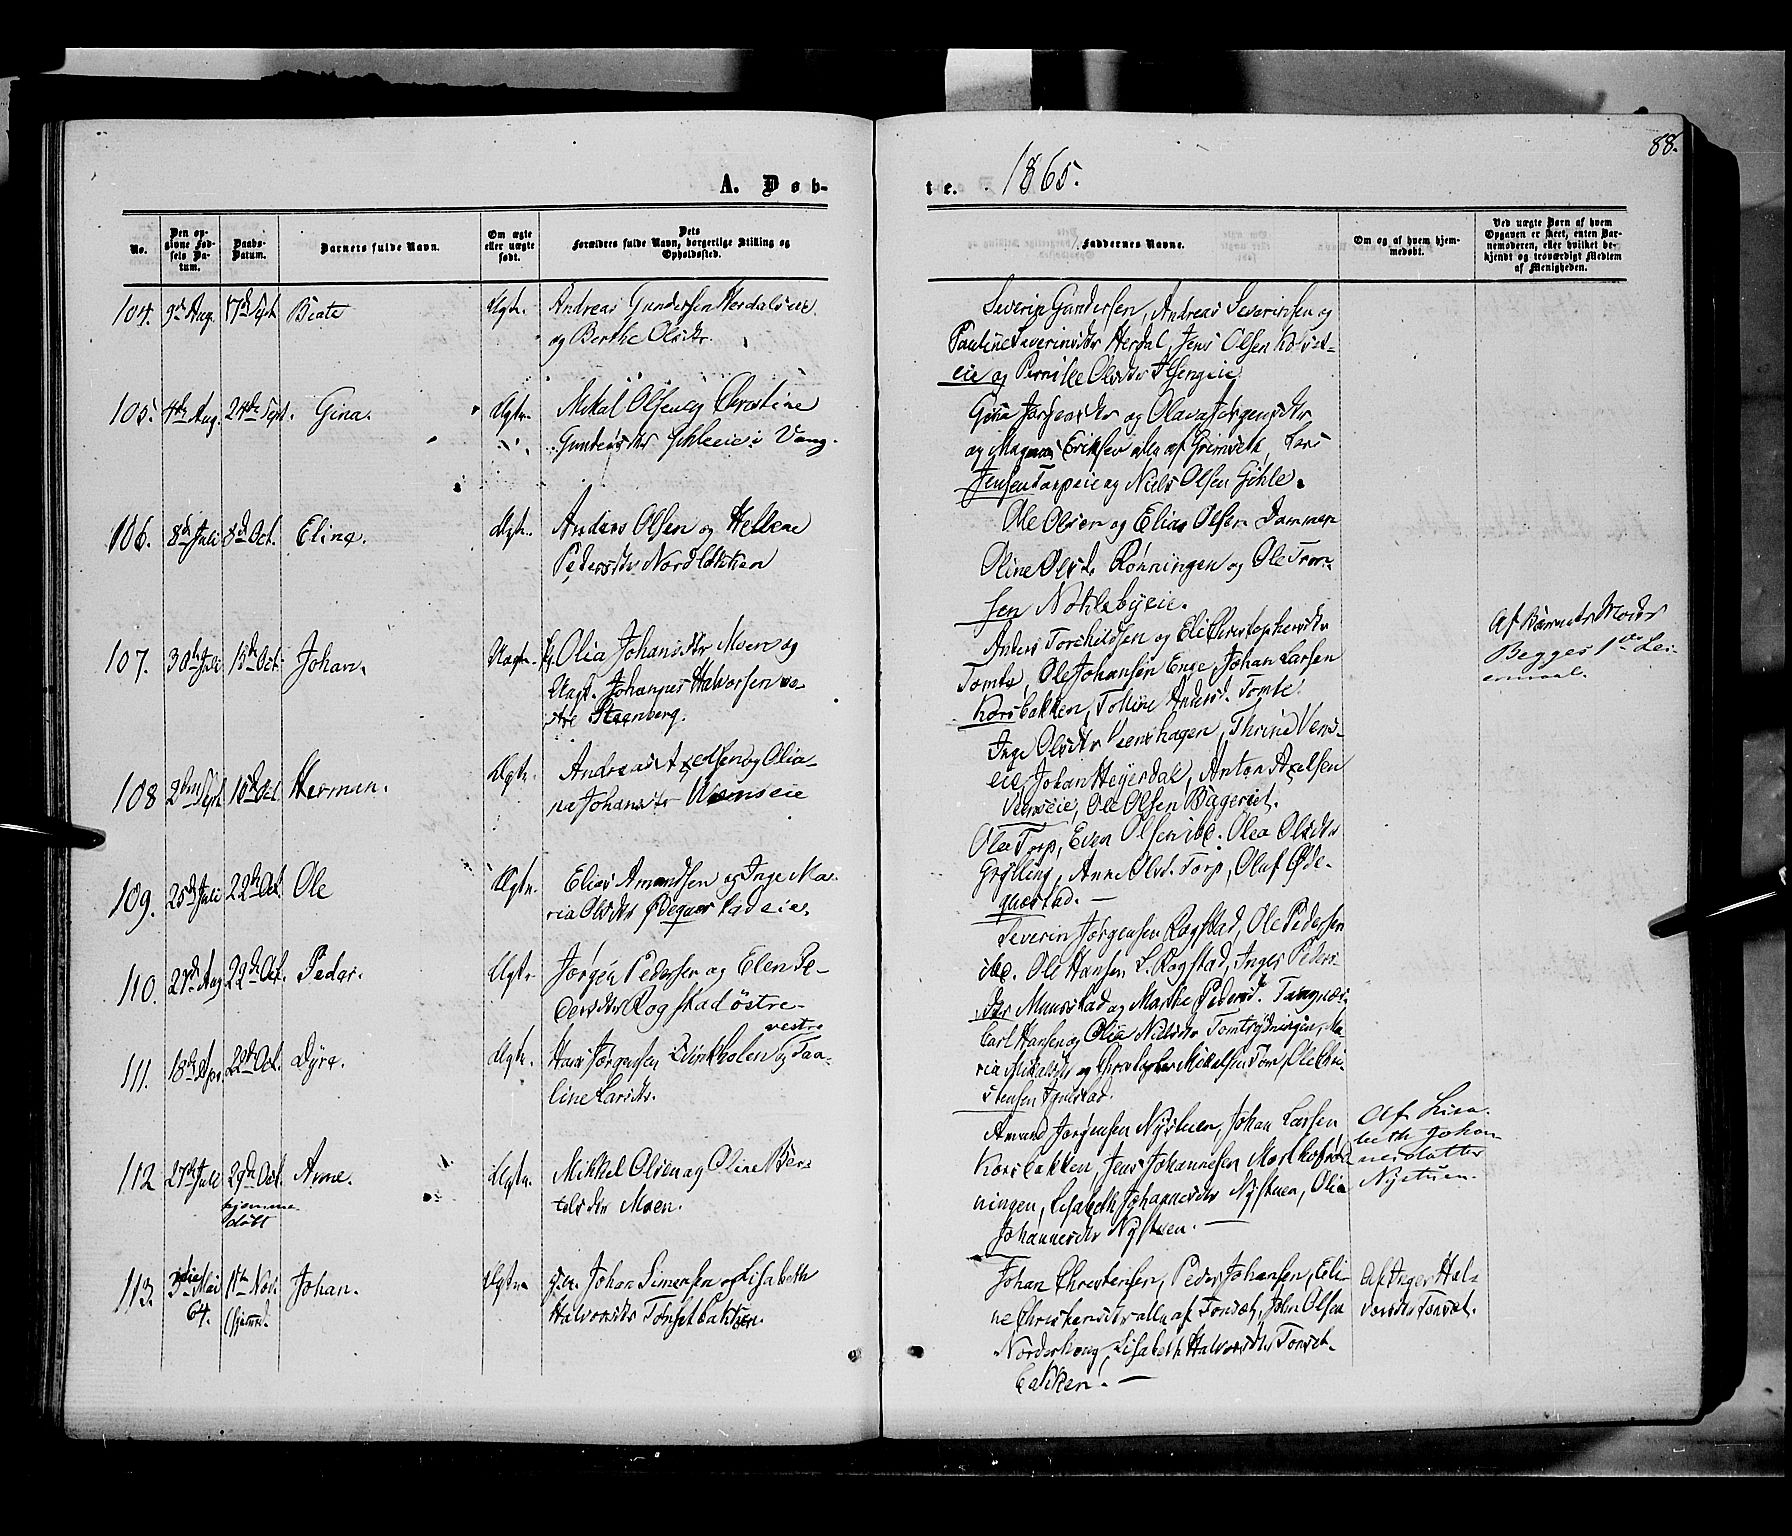 88.
A. Døb-
te. 1865.
No.
Den opgivne Fødsels Datum.
Daabs-Datum.
Barnets fulde Navn.
Om ægte eller uægte født.
Dets Forældres fulde Navn, borgerlige Stilling og Opholdssted.
Faddernes Navne.
Om og af hvem hjemmedøbt.
Ved uægte Børn af hvem Opgaven er skeet, enten Barnemoderen, eller hvilket bekjendt og troværdigt Medlem af Menigheden.
104. 9de Aug. 17de Sept. Beate Ægte. Andreas Gundersen Herdalseie
og Berthe Olsdtr.
Severin Gundersen, Andreas Severinsen og
Pauline Severinsdtr Herdal, Jens Olsen
eie og Pernille Olsdtr
105. 4de Aug. 24de Sept. Gina. Ægte. Mikal Olsen og Christine
Gundersdtr i Vang.
Gina Jørgensdtr og Olava Jørgensdtr
og Magnus Eriksen alle af Grimset, Lars
Jensen Torpeie og Niels Olsen Gihle.
106. 8de Juli 8de Oct. Eline. Ægte. Anders Olsen og Hellene
Pedersdtr Nordløkken
Ole Olsen og Elias Olsen Dammen
Oline Olsd. Rønningen og Ole
sen
107. 30te Juli 15de Oct. Johan. Uægte. Pg. Olia Johansdtr Moen og
Ungk. Johannes Halvorsen ve-
stre Steenberg.
Anders Torchildsen og Eli Christophersdtr
Tomte, Ole Johansen Enge, Johan Larsen
Korsbakken, Andersd. Tomte.
Af Barnets Moder
Begges 1ste Lei-
ermaal.
108 2den Sept. 15de Oct. Herman. Ægte. Andreas Axelsen og Olia-
na Johansdtr
Inge Olsdtr Thrine
eie Johan Heyerdal, Anton Axelsen
Ole Olsen Bageriet.
109. 25de Juli 22de Oct. Ole Ægte. Elias Amundsen og Inge Ma-
ria Olsdtr Ødegaarstadeie.
Olea Torp, Even Olsen ibd. Olea Olsdtr
Grølling, Anne Olsd. Torp, Oluf Øde-
gaarstad. —
110. 22de Oct. Peder. Ægte Jørgen Pedersen og Elen Pe-
dersdtr Rogstad østre.
Severin Jørgensen Rogstad, Ole Pedersen
ibd. Ole Hansen L. Rogstad, Inger Peders-
dtr og Marthe Pedersdtr
111. 18de Apr. 22de Oct. Dyre. Ægte. Hans Jørgensen vestre og Pau-
line Larsdtr.
Carl Hansen og Olia Nielsdtr Ma-
ria Mikalsdtr og Christopher Mikkelsen Ole Chri-
stensen
112 27de Juli 29de Oct. Arne. Ægte. Mikkel Olsen og Oline Ber-
telsdtr Moen.
hjemme
døbt
Amund Jørgensen Nystuen, Johan Larsen
Korsbakken, Jens Johannesen
ningen, Lisabeth Johannesdtr Nystuen, Olia
Johannesdtr Nystuen. —
Af Lisa-
beth Johan
nesdatter
Nystuen.
113. Mai
64. 1ste Nov. Johan. Ægte Johan Simensen og Lisabeth
Halvorsdtr Tønsetbakken.
Johan Christensen, Peder Johansen, Eli-
ne Christensdtr alle af Tønset, John Olsen
Lisabeth Halvorsdtr Tønset-
bakken. —
Af Inger Hal-
vorsdtr Tønset.